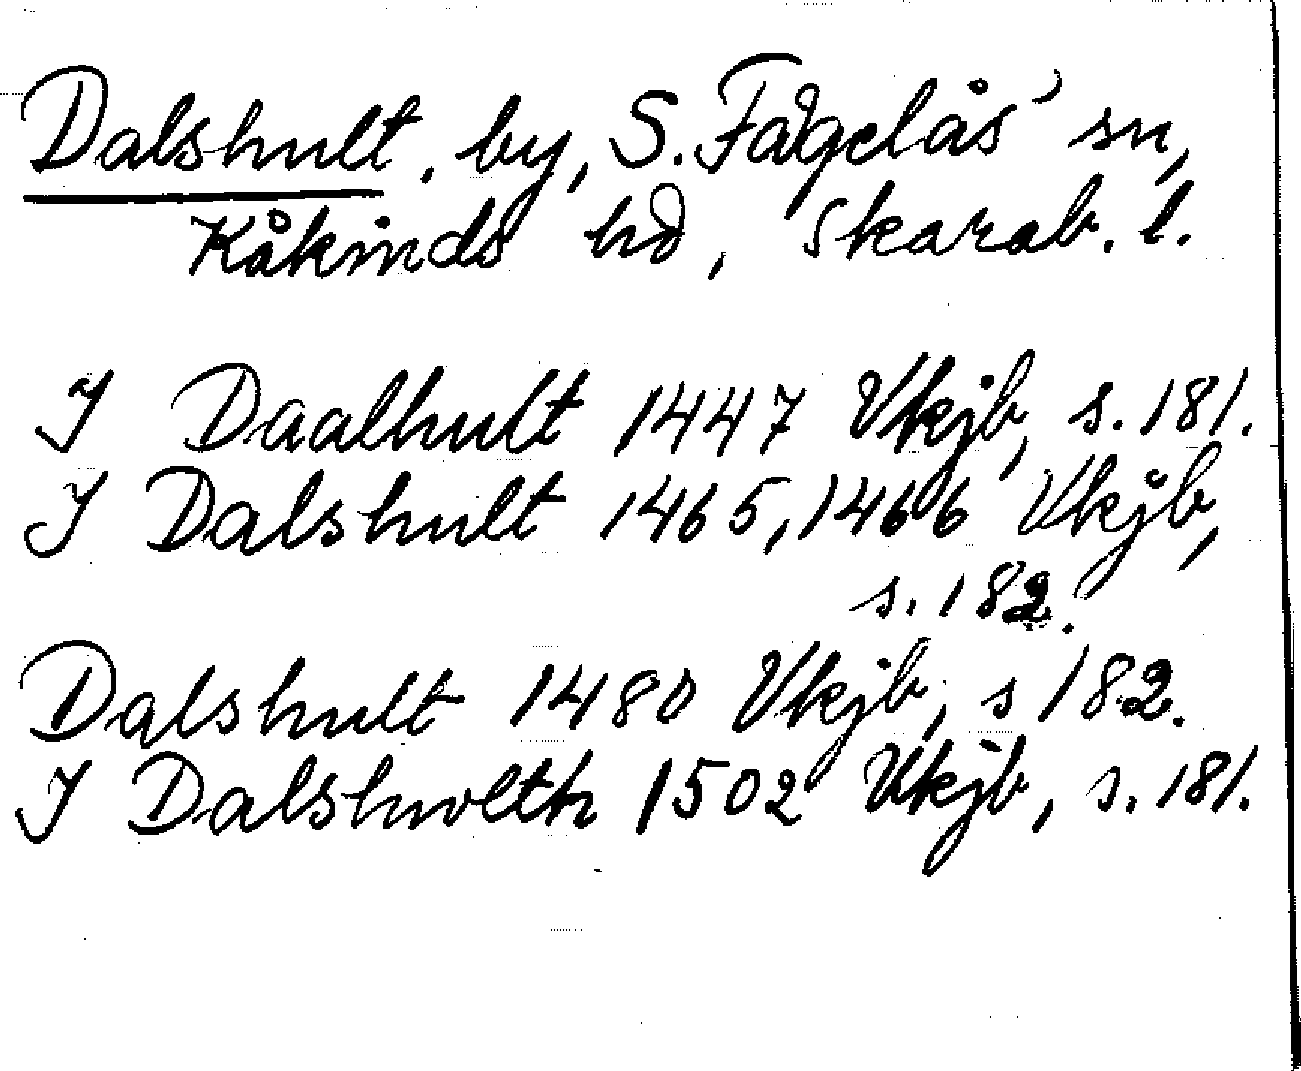 Dalshult, by, S. Fågelås' sn,
Kåkinds hd, Skarab. l.
I Daalhult 1447 Vkjb, s. 181.
I Dalshult 1465, 1466 Vkjb,
s. 182.
Dalshult 1480 Vkjb, s 182.
I Dalshwlth 1502 Vkjb, s. 181.